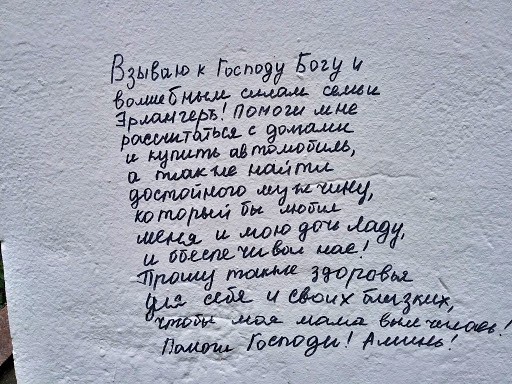 Взываю к Господу Богу и
волшебным силам семьи
Эрлангеръ! Помоги мне
рассчитаться с домами
и купить автомобиль,
а также найти
достойного мужчину,
который бы любил
меня и мою дочь Ладу,
и обеспечивал нас!
Прошу также здоровья
для себя и своих близких,
чтобы моя мама вылечилась!
Помоги Господи! Аминь!